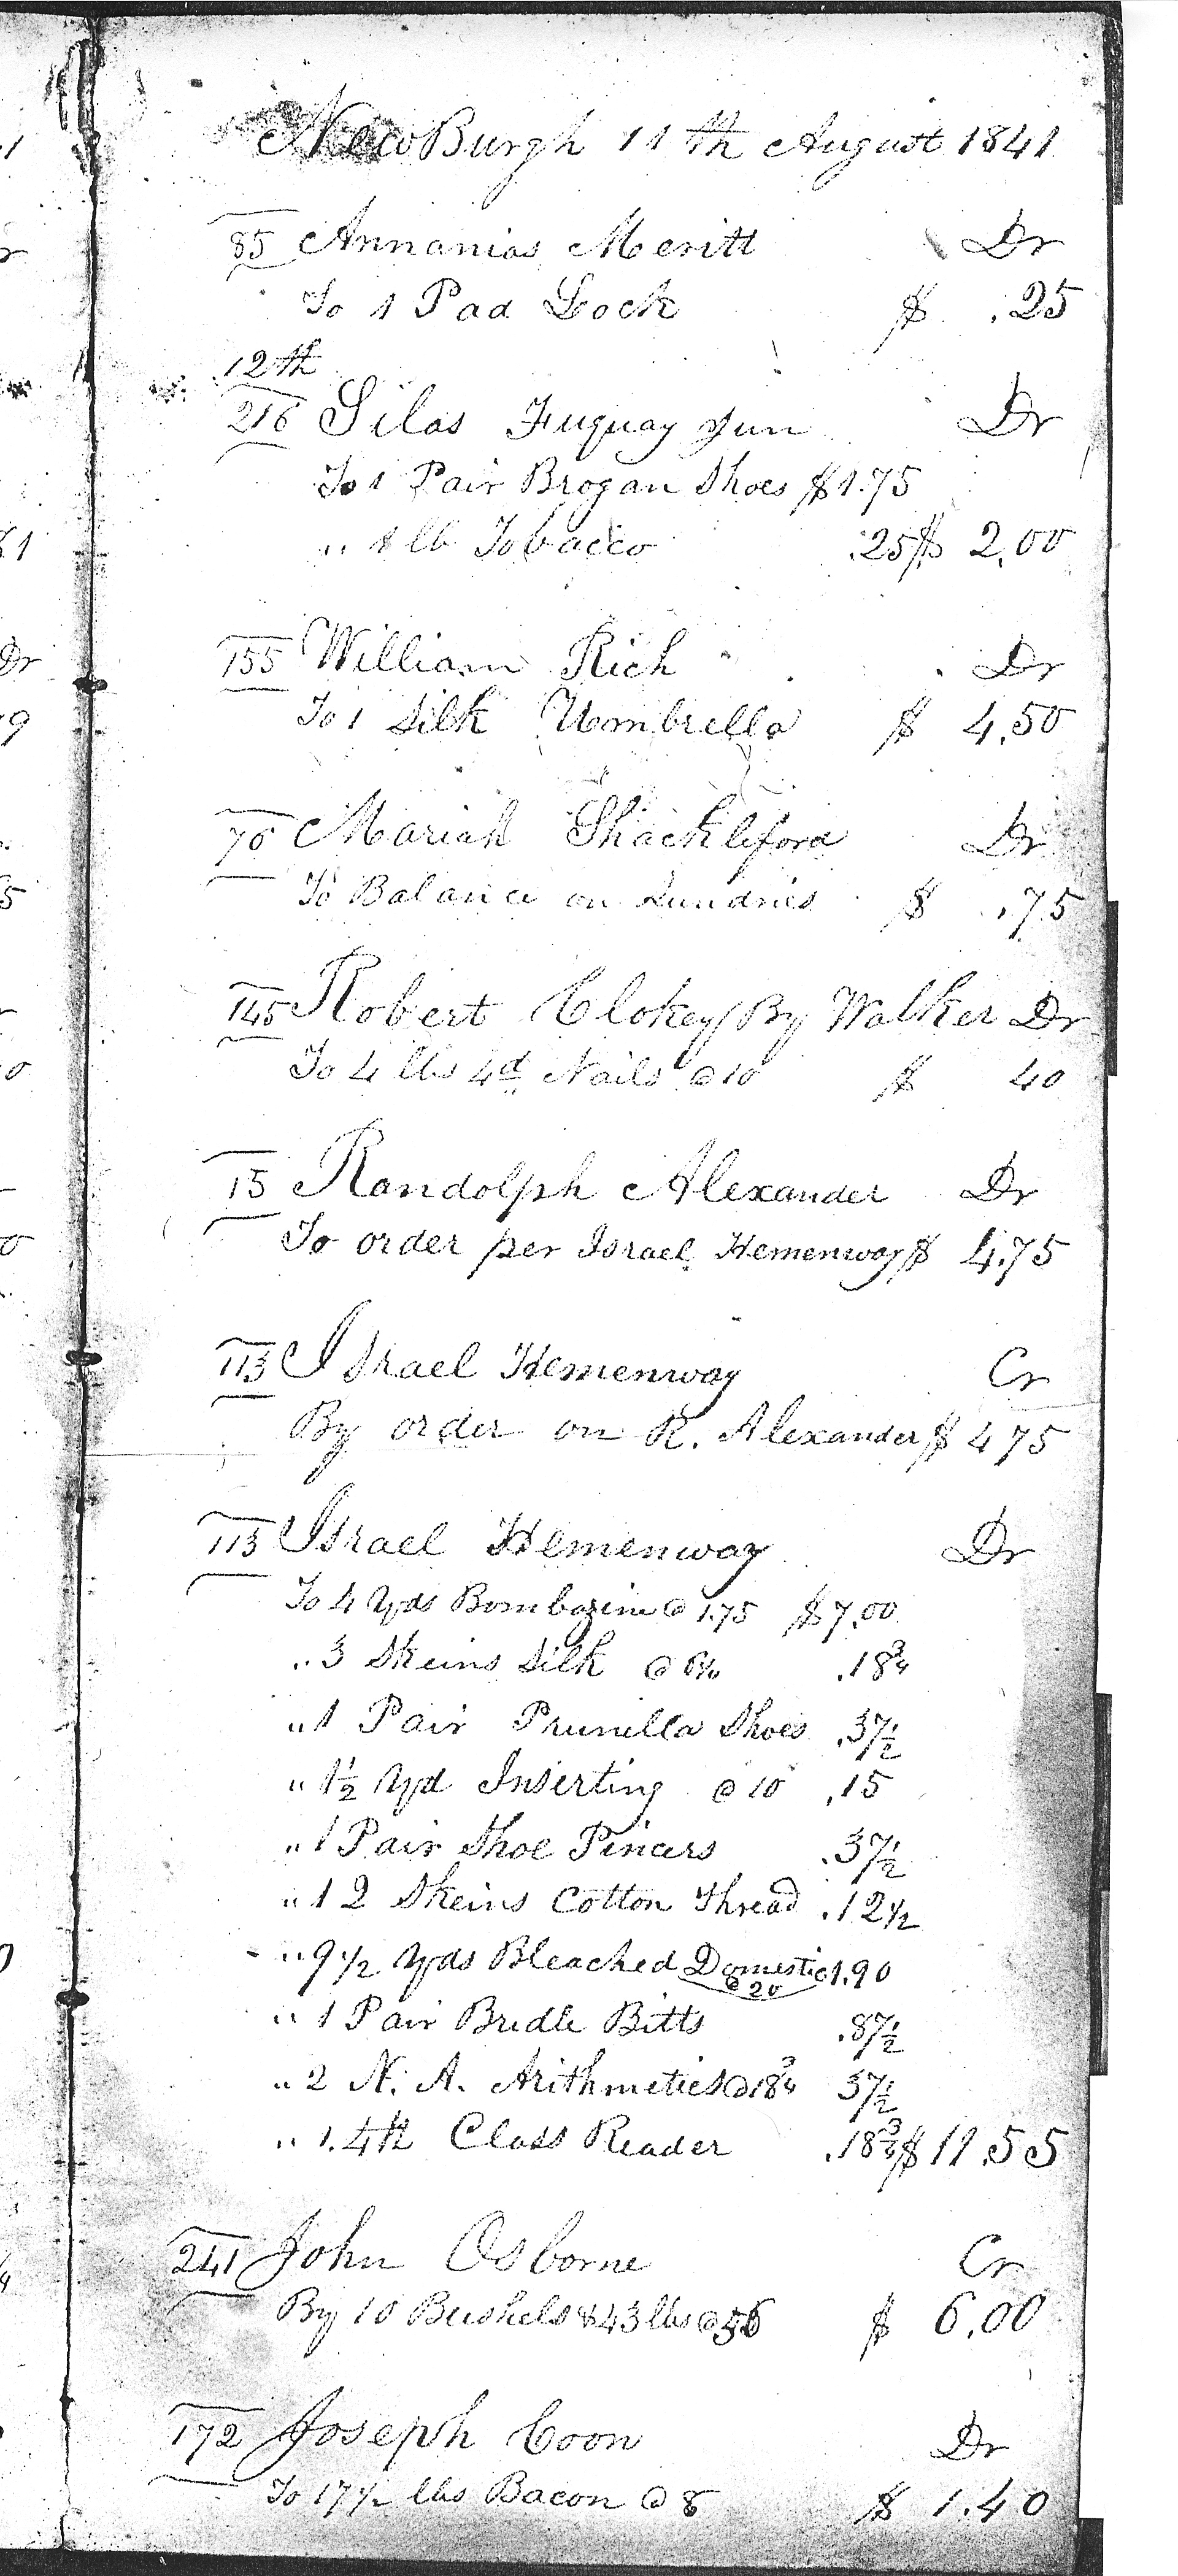 NewBurgh 11th August 1841
85 Annanias Meritt Dr
To 1 Pad Lock $ .25
12th
216 Silas Fuquay Jun Dr
To 1 Pair Brogan Shoes $1.75
" 1 lb Tobacco .25 $ 2.00
155 William Rich Dr
To 1 Silk Umbrella $ 4.50
76 Mariah Shackleford Dr
To Balance on Sundries $ .75
145 Robert Clokey By Walker Dr
To 4 lbs 4d Nails @ 10 $ 40
15 Randolph Alexander Dr
To order per Israel Hemenway $ 4.75
113 Israel Hemenway Cr
By order on R. Alexander $ 4 75
113 Israel Hemenway Dr
To 4 Yds Bombazine @ 1.75 $7.00
" 3 Skeins Silk @ 6¼ .18¾
" 1 Pair Prunella Shoes .37½
" 1½ Yd Inserting @ 10 .15
" 1 Pair Shoe Pincers .37½
" 12 Skeins Cotton Thread .12½
" 9½ Yds Bleached Domestic 1.90
@ 20
" 1 Pair Bridle Bitts .87½
" 2 N. A. Arithmetics @ 18¾ 37½
" 1. 4th Class Reader .18¾ $ 11.55
241 John Osborne Cr
By 10 Bushels & 43 lbs @ 56 $ 6.00
172 Joseph Coon Dr
To 17½ lbs Bacon @ 8 $ 1.40